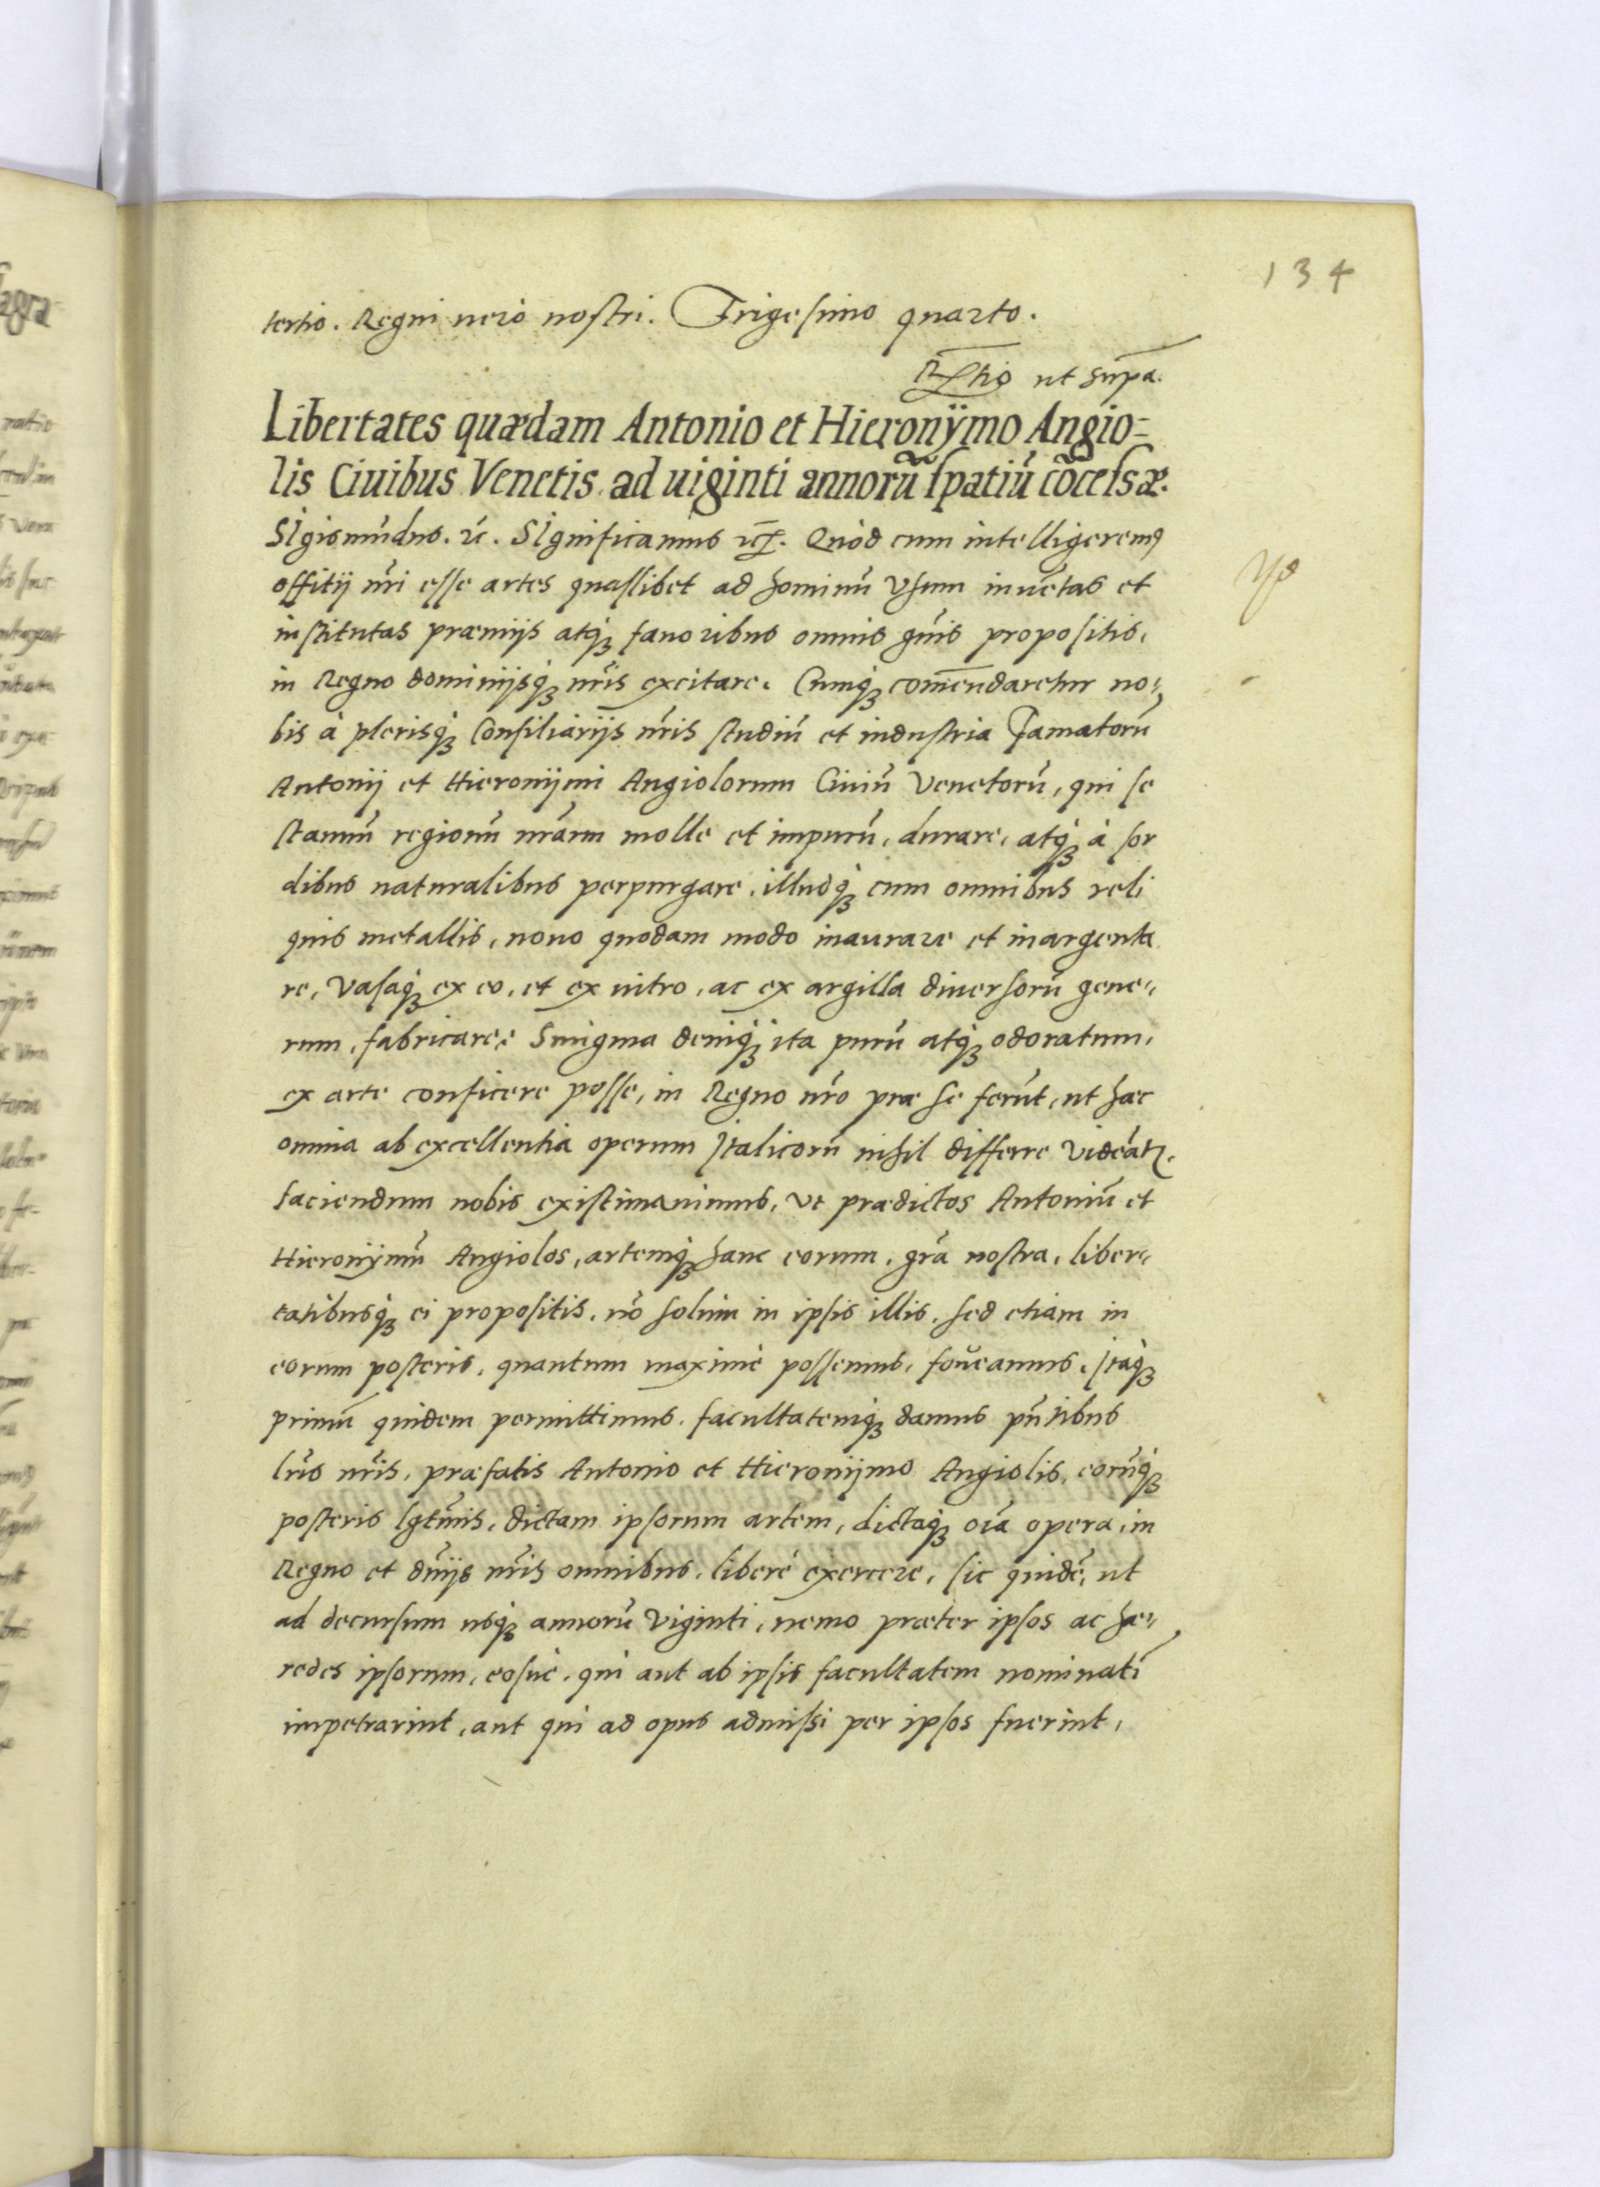 134
tertio. Regni vero nostri. Trigesimo quarto.
ut supa.
Libertates quædam Antonio et Hieronÿmo Angio=
lis Ciuibus Venetis ad uiginti annorũ spatiũ cõcessæ.
SIgismũdus. SIgnificamus. Quòd cum intelligeremꝰ
offitij nr̃i esse artes quaslibet ad hominũ Vsum inuẽtas et
institutas præmijs atq́ꝫ fauoribus omnis gñis propositis,
in Regno dominijsq́ꝫ nr̃is excitare. Cumq́ꝫ com̃endaretur no=
bis à plerisq́ꝫ Consiliarijs nr̃is studiũ et industria Famatorũ
Antonij et Hieronijmi Angiolorum Ciuiũ Venetorũ, qui se
stannũ regionũ nr̃arum molle et impurũ, durare, atq́ꝫ à sor
dibus naturalibus perpurgare, illudq́ꝫ cum omnibus reli
quis metallis, nouo quodam modo inaurare et inargenta
re, Vasaq́ꝫ ex eo, et ex uitro, ac ex argilla diuersorũ gene=
rum, fabricare: Smigma deniq́ꝫ ita purũ atq́ꝫ odoratum,
ex arte conficere posse, in Regno nr̃o præ se ferũt, ut hæc
omnia ab excellentia operum Italicorũ nihil differre Videãtꝛ.
faciendum nobis existimauimus, Vt prædictos Antoniũ et
Hieronijmũ Angiolos, artemq́ꝫ hanc eorum, gr̃a nostra, liber=
tatibusq́ꝫ ei propositis, nõ solũm in ipsis illis, sed etiam in
eorum posteris, quantum maximè possemus, foueamus. Itaq́ꝫ
primũ quidem permittimus, facultatemq́ꝫ damus pñtibus
lr̃is nr̃is, præfatis Antonio et Hieronijmo Angiolis, eorũq́ꝫ
posteris lgtĩmis, dictam ipsorum artem, dictaq́ꝫ oĩa opera, in
Regno et dñijs nr̃is omnibus, liberè exercere, sic quidẽ, ut
ad decursum usq́ꝫ annorũ Viginti, nemo præter ipsos ac hæ=
redes ipsorum, eosúe, qui aut ab ipsis facultatem nominatĩ
impetrarint, aut qui ad opus admissi per ipsos fuerint,